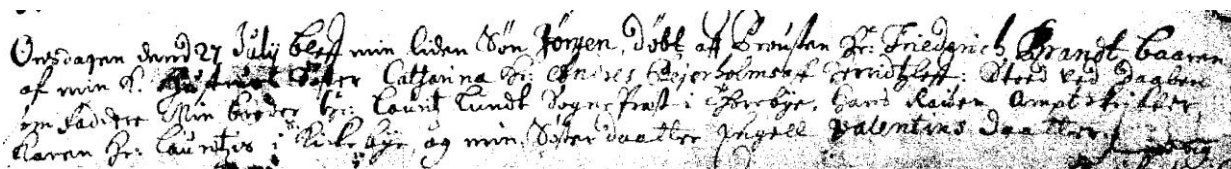 Onsdagen dend 27 Julij bleff min liden Søn Jörgen, døbt aff Prousten Hr: Friederich Brandt, baaren
af min S. Hustrues Søster Catharina Hr: Andres Bejerholms aff Stood ved Daaben
om Faddere Min broder Hr: Laurit Lundt Sogne Præst i Thorebye, Hans Rauen Ampt skriffuer
Karen Hr: Lauritzis i Kirkebye, og min Søster daatter Ingell Valentins daatter